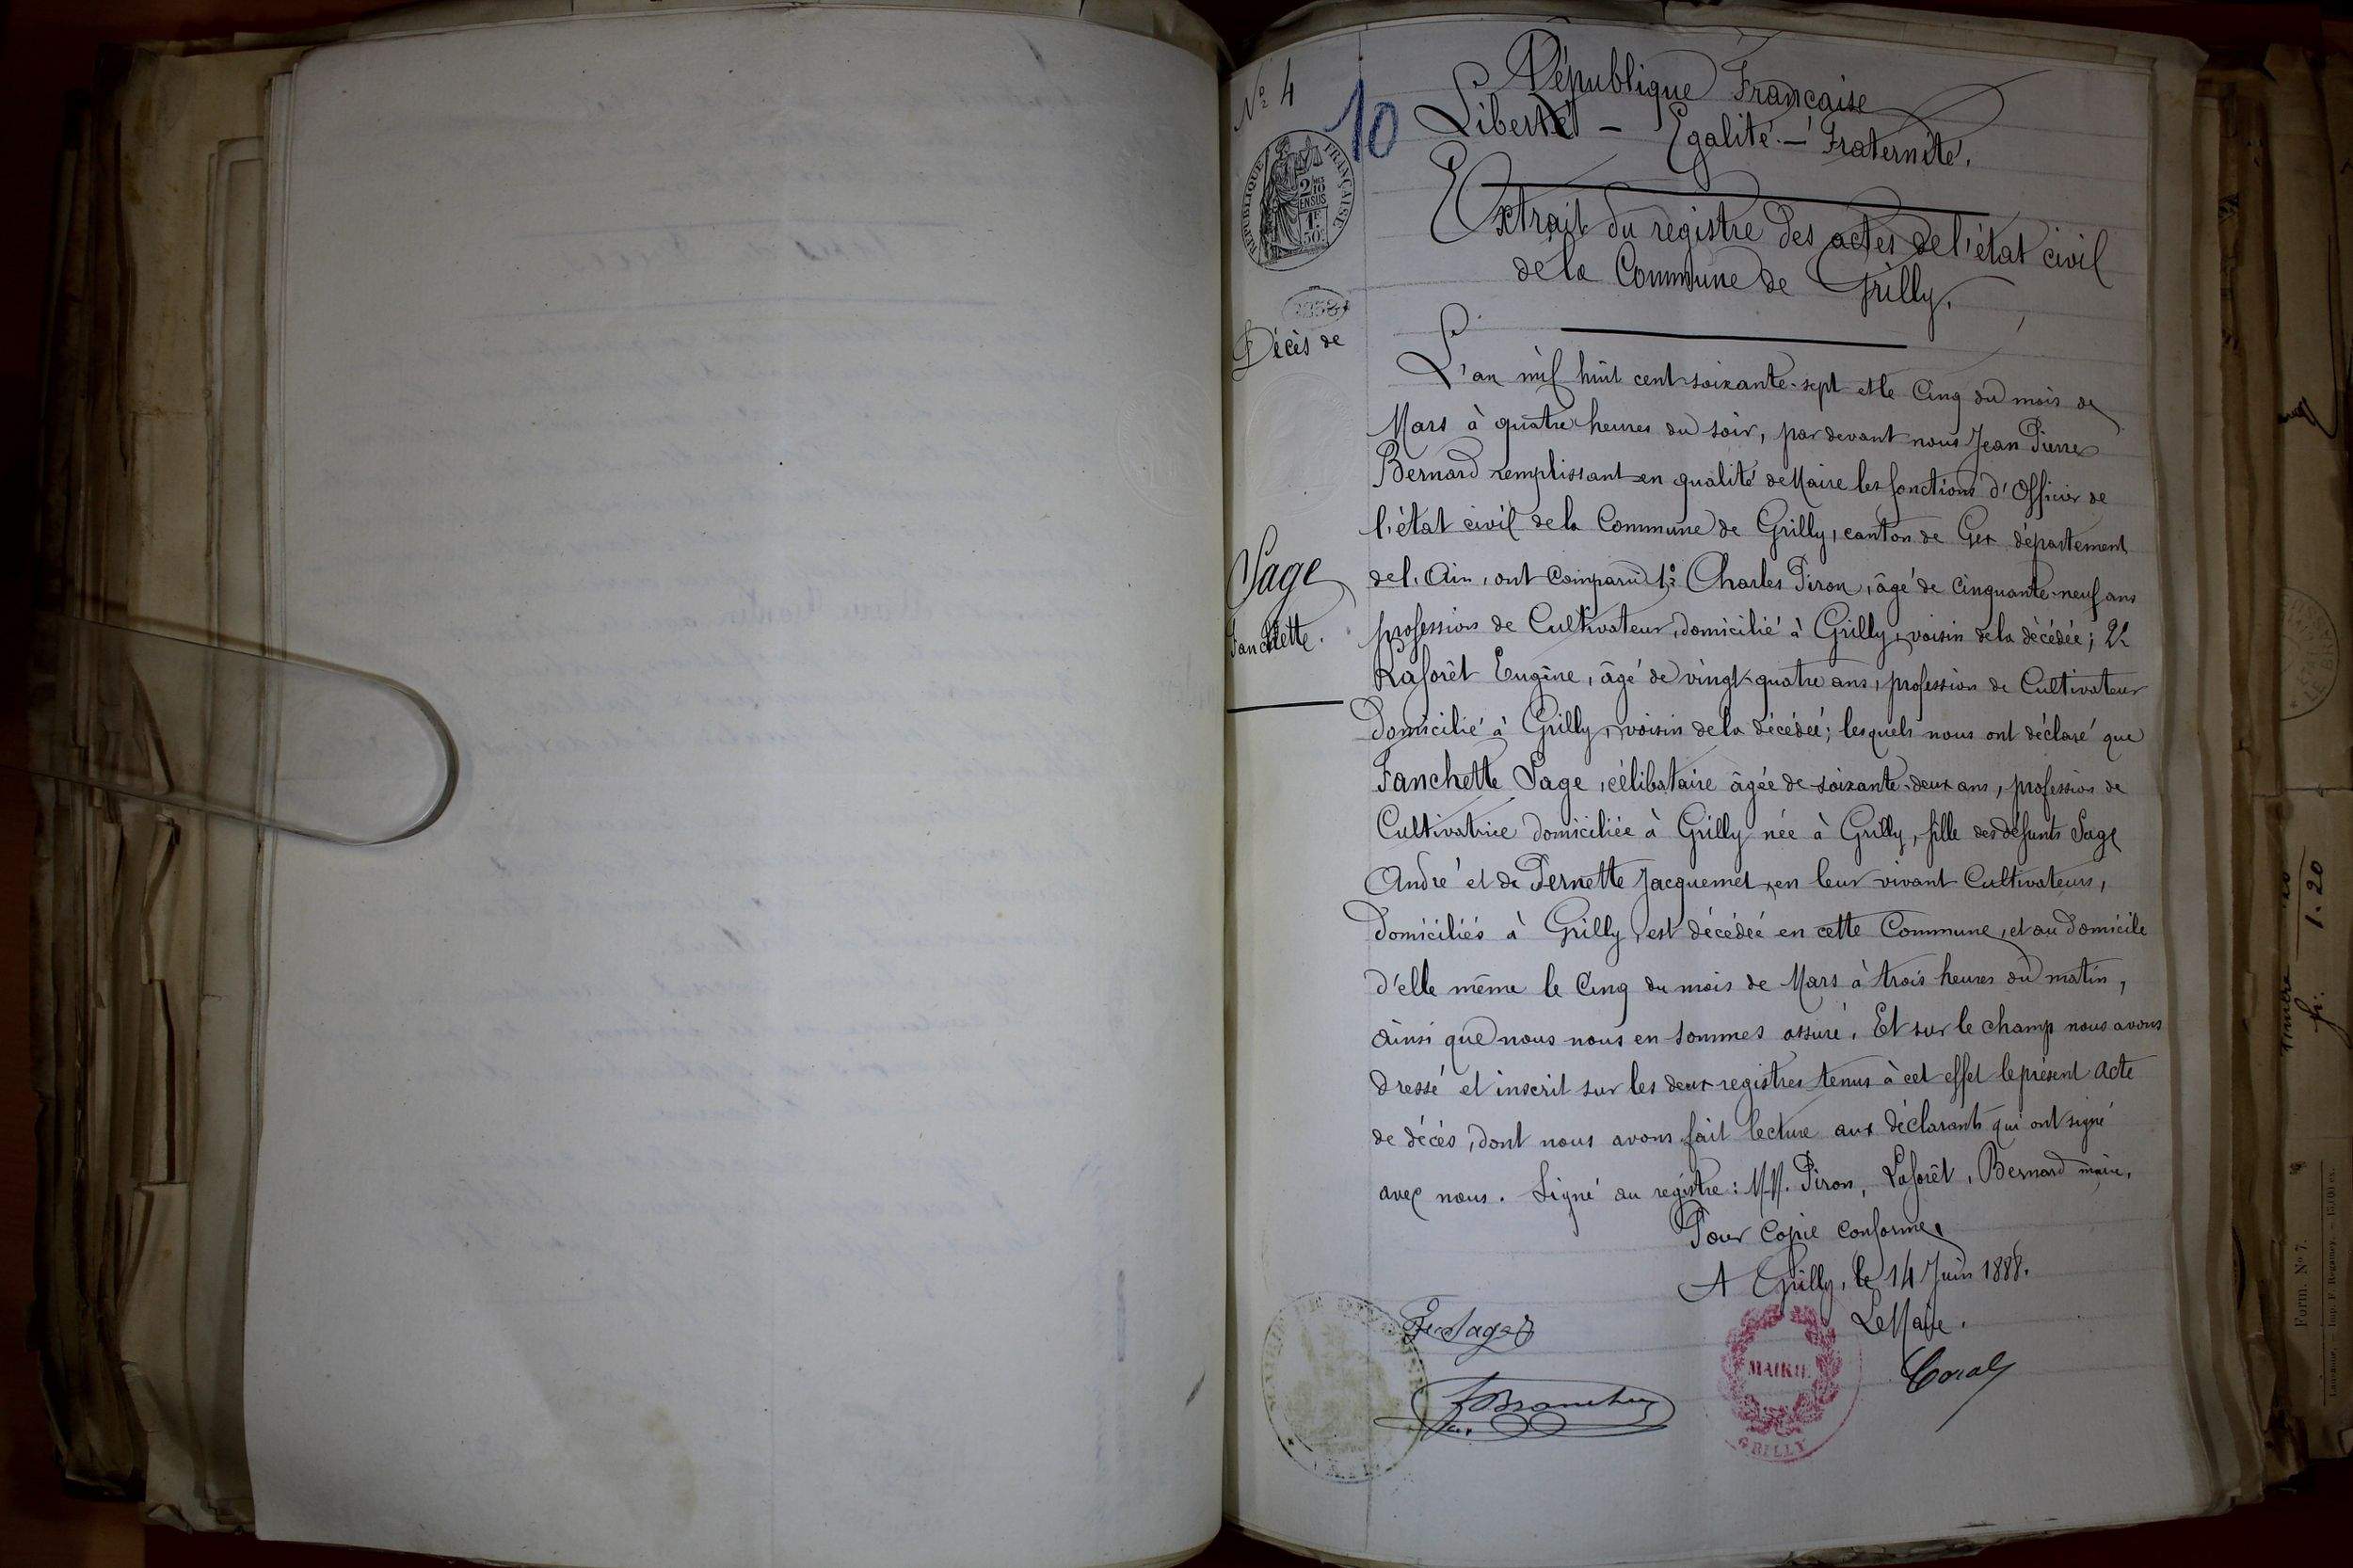 Nº 4
10
République Française
Liberté - Egalité - Fraternité.
RÉPUBLIQUE FRANÇAISE
2/10
EN SUS
1F
50c
Extrait du registre des actes de l'état civil
de la Commune de Grilly.
Décès de
Sage
Fanchette.
L'an mil huit cent soixante-sept et le Cinq du mois de
Mars à quatre heures du soir, par devant nous Jean Pierre
Bernard remplissant en qualité de Maire les fonctions d'Officier de
l'état civil de la Commune de Grilly, canton de Gex département
de l'Ain, ont Comparu 1º Charles Piron, âgé de Cinquante-neuf ans
profession de Cultivateur, domicilié à Grilly, voisin de la décédée; 2º
Laforêt Eugène, âgé de vingt-quatre ans, profession de Cultivateur
Domicilié à Grilly, voisin de la décédée; lesquels nous ont déclaré que
Fanchette Sage, célibataire âgée de soixante-deux ans, profession de
Cultivatrice domiciliée à Grilly née à Grilly, fille des défunts Sage
André et de Pernette Jacquemet, en leur vivant Cultivateurs,
Domiciliés à Grilly, est décédée en cette Commune, et au Domicile
d'elle même le Cinq du mois de Mars à trois heures du matin,
ainsi que nous nous en sommes assuré. Et sur le champ nous avons
dressé et inscrit sur les deux registres tenus à cet effet le présent acte
de décès, dont nous avons fait lecture aux déclarants qui ont signé
avec nous. Signé au registre: M.M. Piron, Laforêt, Bernard maire.
Pour Copie conforme,
A Grilly, le 14 Juin 1888.
Le Maire.
MAIRIE
GRILLY
1.20
Form. Nº 7.